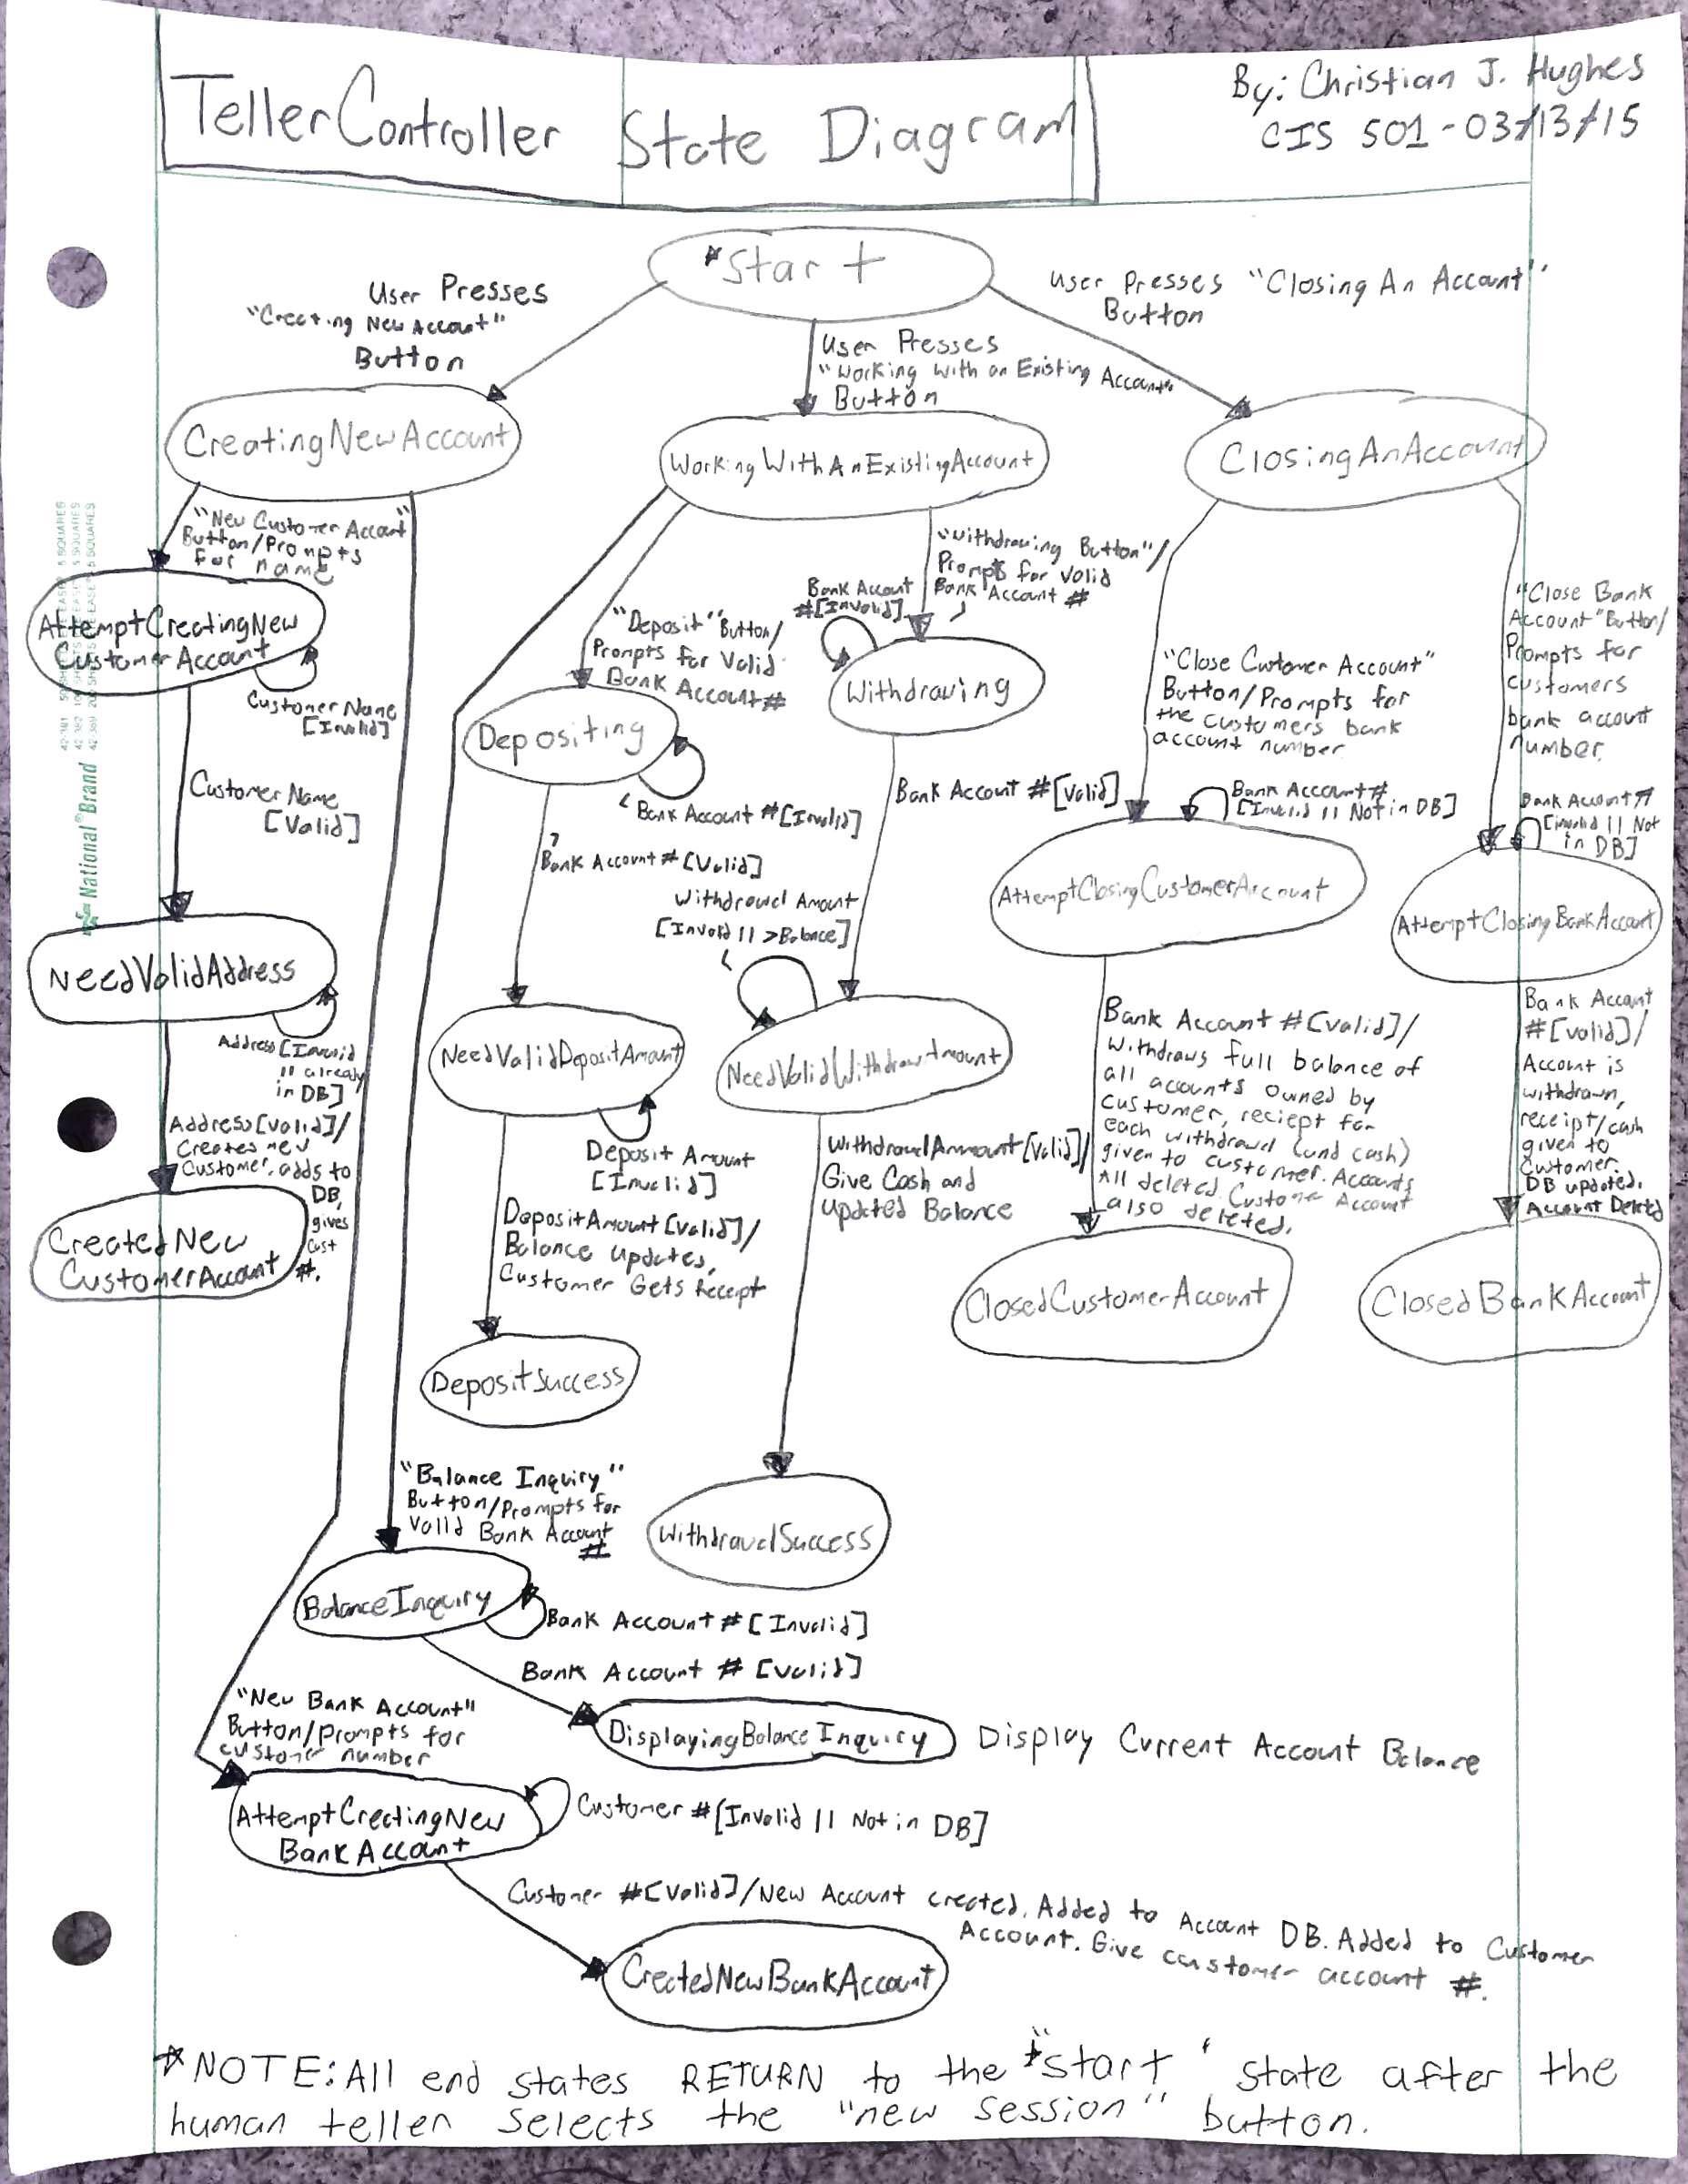 TellerController State Diagram
By: Christian J. Hughes
CIS 501 - 03/13/15
*Start
User Presses
"Creating New Account"
Button
User Presses
"Working With an Existing Account"
Button
User Presses "Closing An Account"
Button
CreatingNewAccount
WorkingWithAnExistingAccount
ClosingAnAccount
"New Customer Account"
Button/Prompts
for name
AttemptCreatingNew
CustomerAccount
Customer Name
[Invalid]
Customer Name
[Valid]
NeedValidAddress
Address [Invalid
|| already
in DB]
Address [Valid]/
Creates new
Customer, adds to
DB,
gives
cust
#.
CreatedNew
CustomerAccount
"Deposit" Button/
Prompts for Valid
Bank Account #
Depositing
Bank Account #[Invalid]
Bank Account #[Valid]
NeedValidDepositAmount
Deposit Amount
[Invalid]
Deposit Amount [Valid]/
Balance updates,
Customer Gets Receipt
DepositSuccess
"Withdrawing Button"/
Prompts for Valid
Bank Account #
Bank Account
#[Invalid]
Withdrawing
Bank Account #[Valid]
Withdrawal Amount
[Invalid || >Balance]
NeedValidWithdrawAmount
Withdrawal Ammount [Valid]/
Give Cash and
Updated Balance
WithdrawalSuccess
"Close Customer Account"
Button/Prompts for
the customers bank
account number
Bank Account #
[Invalid || Not in DB]
AttemptClosingCustomerAccount
Bank Account #[Valid]/
Withdraws full balance of
all accounts owned by
customer, reciept for
each withdrawl (and cash)
given to customer. Accounts
All deleted. Customer Account
also deleted.
ClosedCustomerAccount
"Close Bank
Account" Button/
Prompts for
customers
bank account
number.
Bank Account #
[Invalid || Not
in DB]
AttemptClosingBankAccount
Bank Account
#[Valid]/
Account is
withdrawn,
receipt/cash
given to
Customer.
DB updated.
Account Deleted
ClosedBankAccount
"Balance Inquiry"
Button/Prompts for
Valid Bank Account
#
BalanceInquiry
Bank Account #[Invalid]
Bank Account #[Valid]
DisplayingBalanceInquiry
Display Current Account Balance
"New Bank Account"
Button/Prompts for
customer number
AttemptCreatingNew
BankAccount
Customer #[Invalid || Not in DB]
Customer #[Valid]/New Account created. Added to Account DB. Added to Customer
Account. Give customer account #.
CreatedNewBankAccount
*NOTE: All end states RETURN to the *"start" state after the
human teller selects the "new session" button.
National®Brand